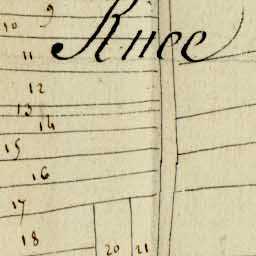 9
10
Knee
11
12
13
14
15
16
17
18
20
21